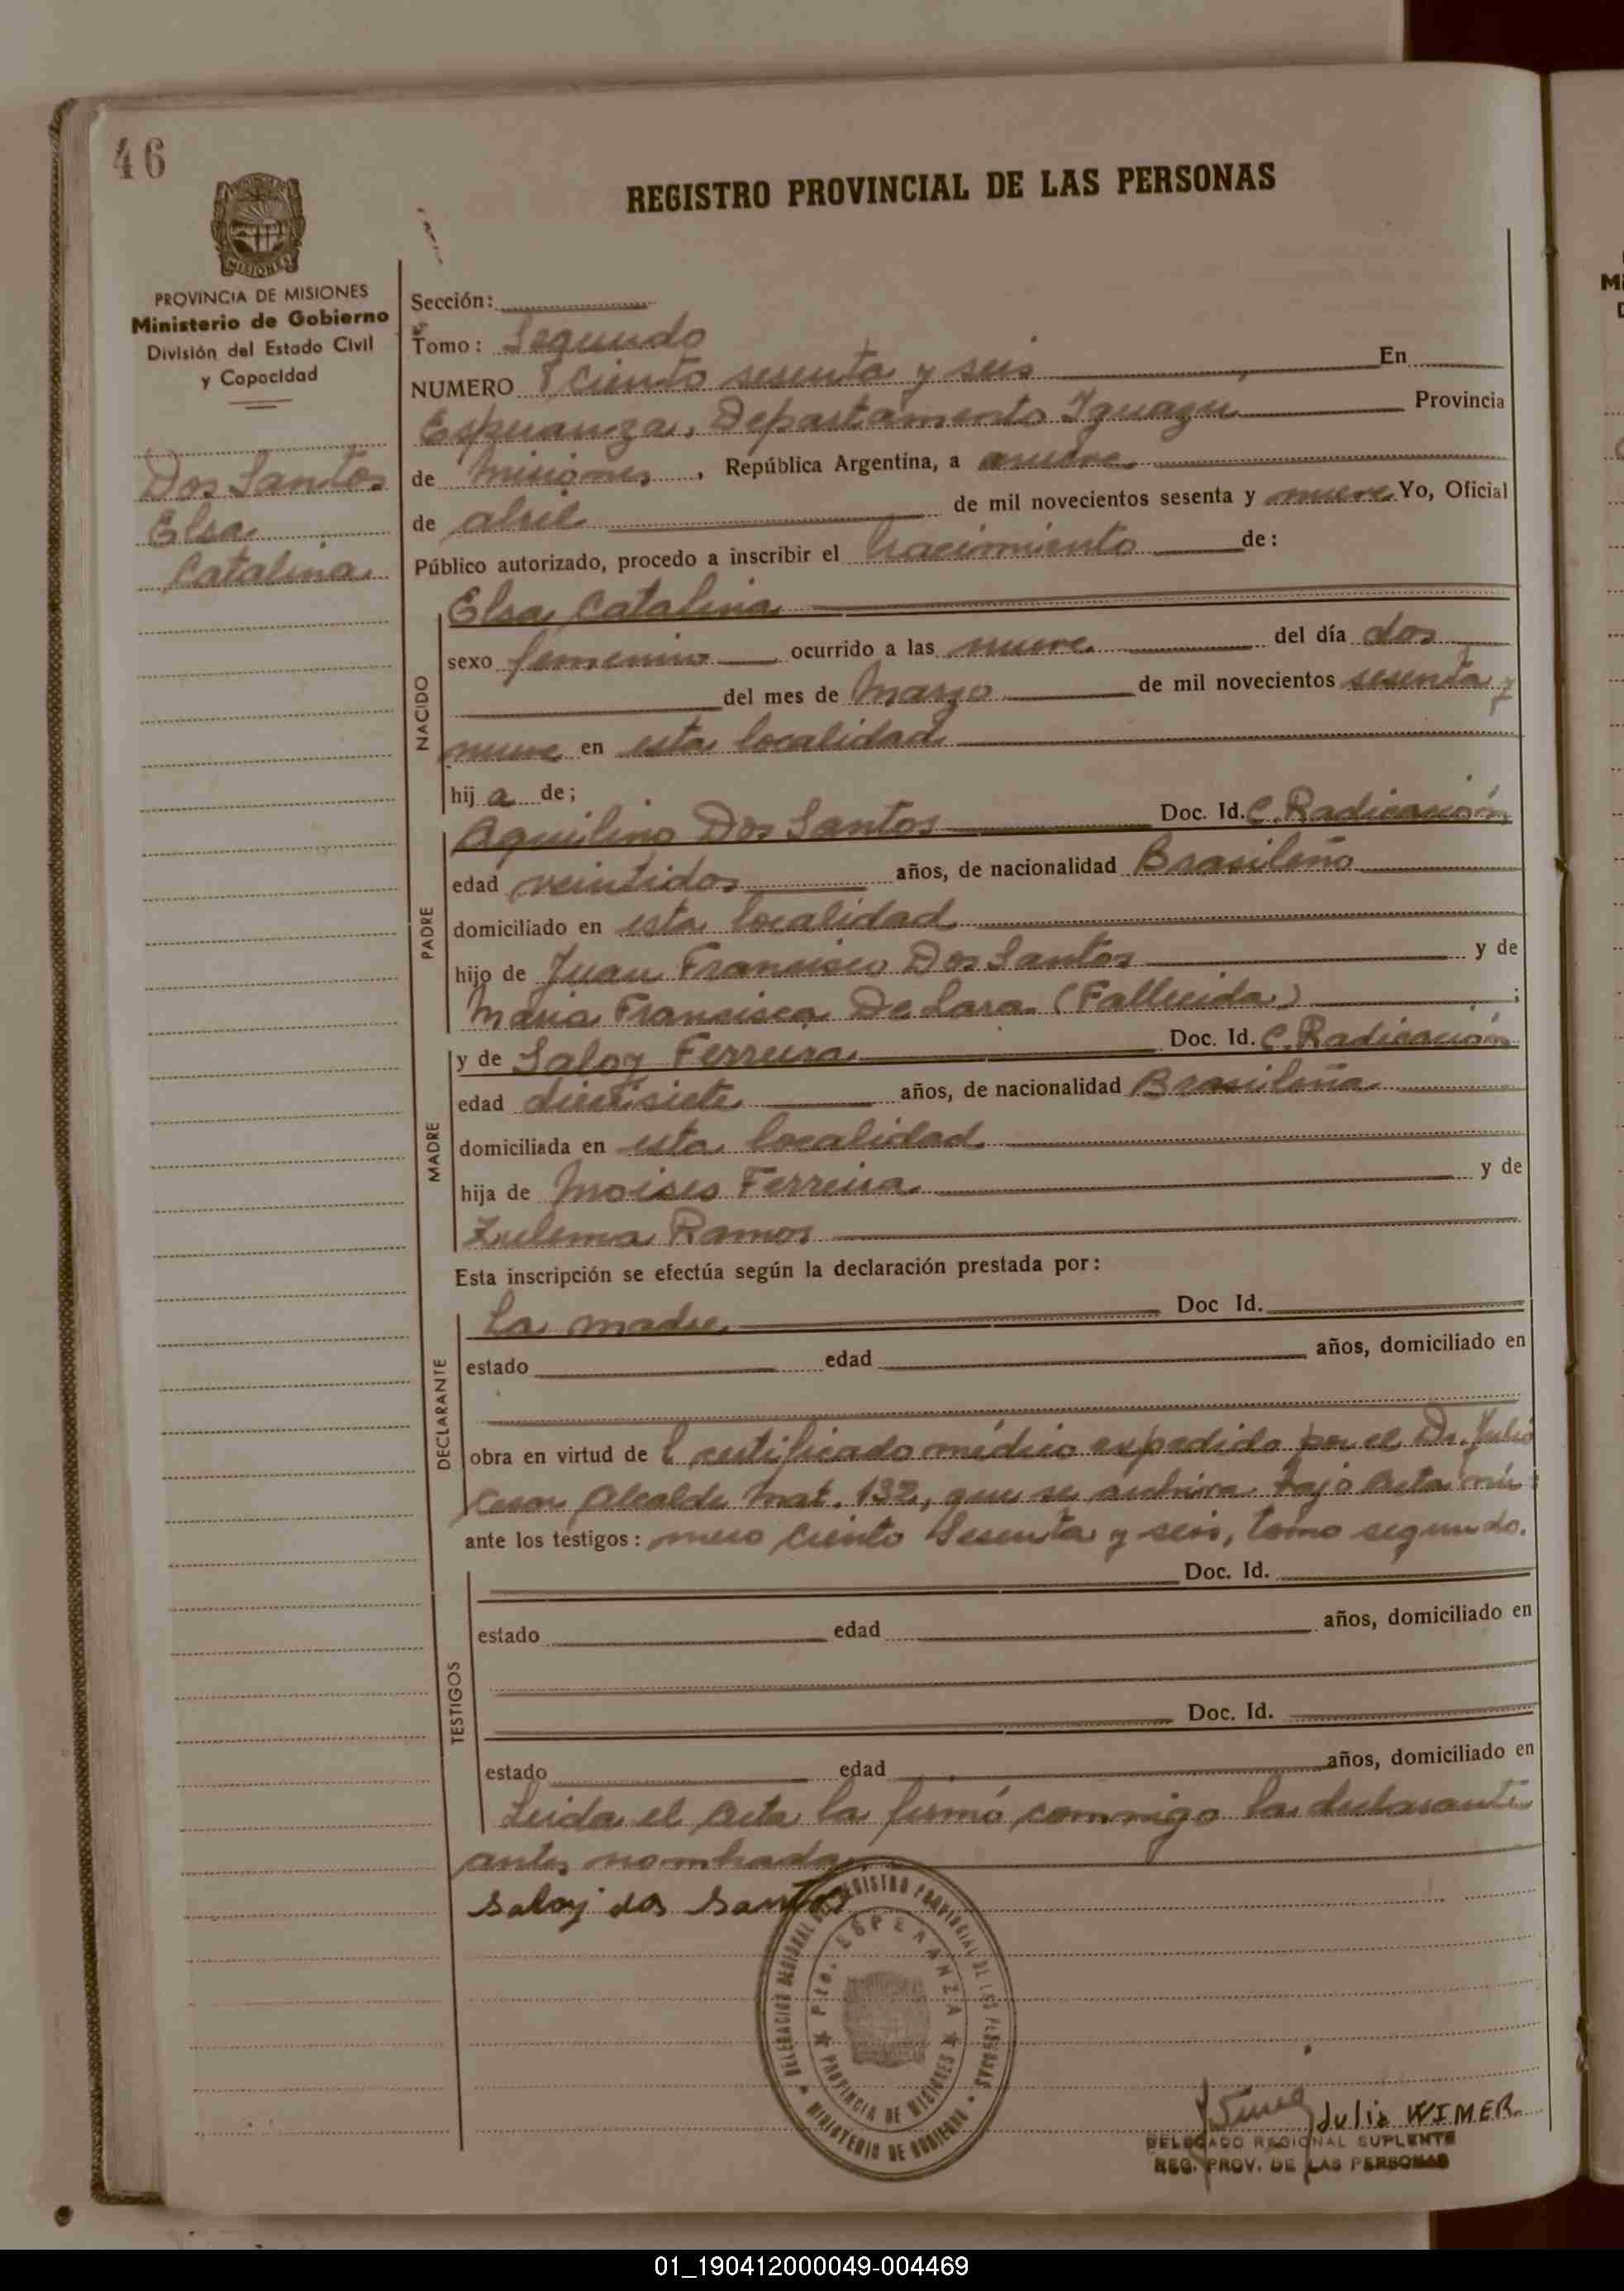 46
REGISTRO PROVINCIAL DE LAS PERSONAS
MISIONES
PROVINCIA DE MISIONES
Ministerio de Gobierno
División del Estado Civil
y Capacidad
Dos Santos
Elsa
Catalina
Sección:
Tomo: Segundo
NUMERO Ciento sesenta y seis En
Esperanza, Departamento Iguazu Provincia
de Misiones, República Argentina, a nueve
de abril de mil novecientos sesenta y nueve Yo, Oficial
Público autorizado, procedo a inscribir el Nacimiento de:
NACIDO
Elsa Catalina
sexo femenino ocurrido a las nueve del día dos
del mes de Marzo de mil novecientos sesenta y
nueve en esta localidad
hij a de;
PADRE
Aquilino Dos Santos Doc. Id. C. Radicación
edad veintidos años, de nacionalidad Brasileño
domiciliado en esta localidad
hijo de Juan Francisco Dos Santos y de
Maria Francisca De Lara (Fallecida) ;
MADRE
y de Saloy Ferreira Doc. Id. C. Radicación
edad diecisiete años, de nacionalidad Brasileña
domiciliada en esta localidad
hija de Moises Ferreira y de
Zulema Ramos
Esta inscripción se efectúa según la declaración prestada por:
DECLARANTE
La madre Doc Id.
estado edad años, domiciliado en
obra en virtud de l certificado médico expedido por el Dr. Julio
Cesar Alcalde Mat. 132, que se archiva bajo Acta nú
ante los testigos: mero Ciento Sesenta y seis, tomo segundo.
TESTIGOS
Doc. Id.
estado edad años, domiciliado en
Doc. Id.
estado edad años, domiciliado en
Leida el Acta la firmó conmigo la declarante
antes nombrada
Saloy dos Santos
DELEGACION REGIONAL DEL REGISTRO PROVINCIAL DE LAS PERSONAS
MINISTERIO DE GOBIERNO
Pto. ESPERANZA
PROVINCIA DE MISIONES
Julia WIMER
DELEGADO REGIONAL SUPLENTE
REG. PROV. DE LAS PERSONAS
01_190412000049-004469